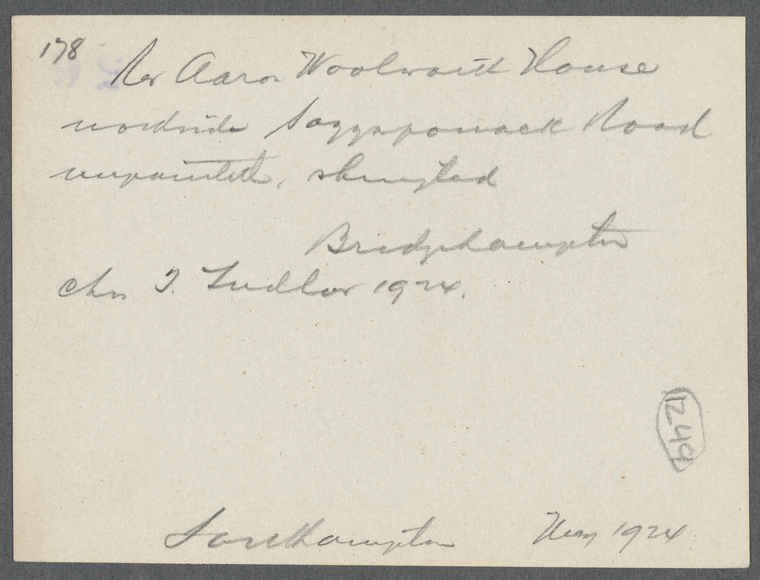 178
Rev Aaron Woolworth House
northside Saggaponack Road
unpainted, shingled
Bridgehampton
Chas T. Ludlow 1924.
1249
Southampton May 1924